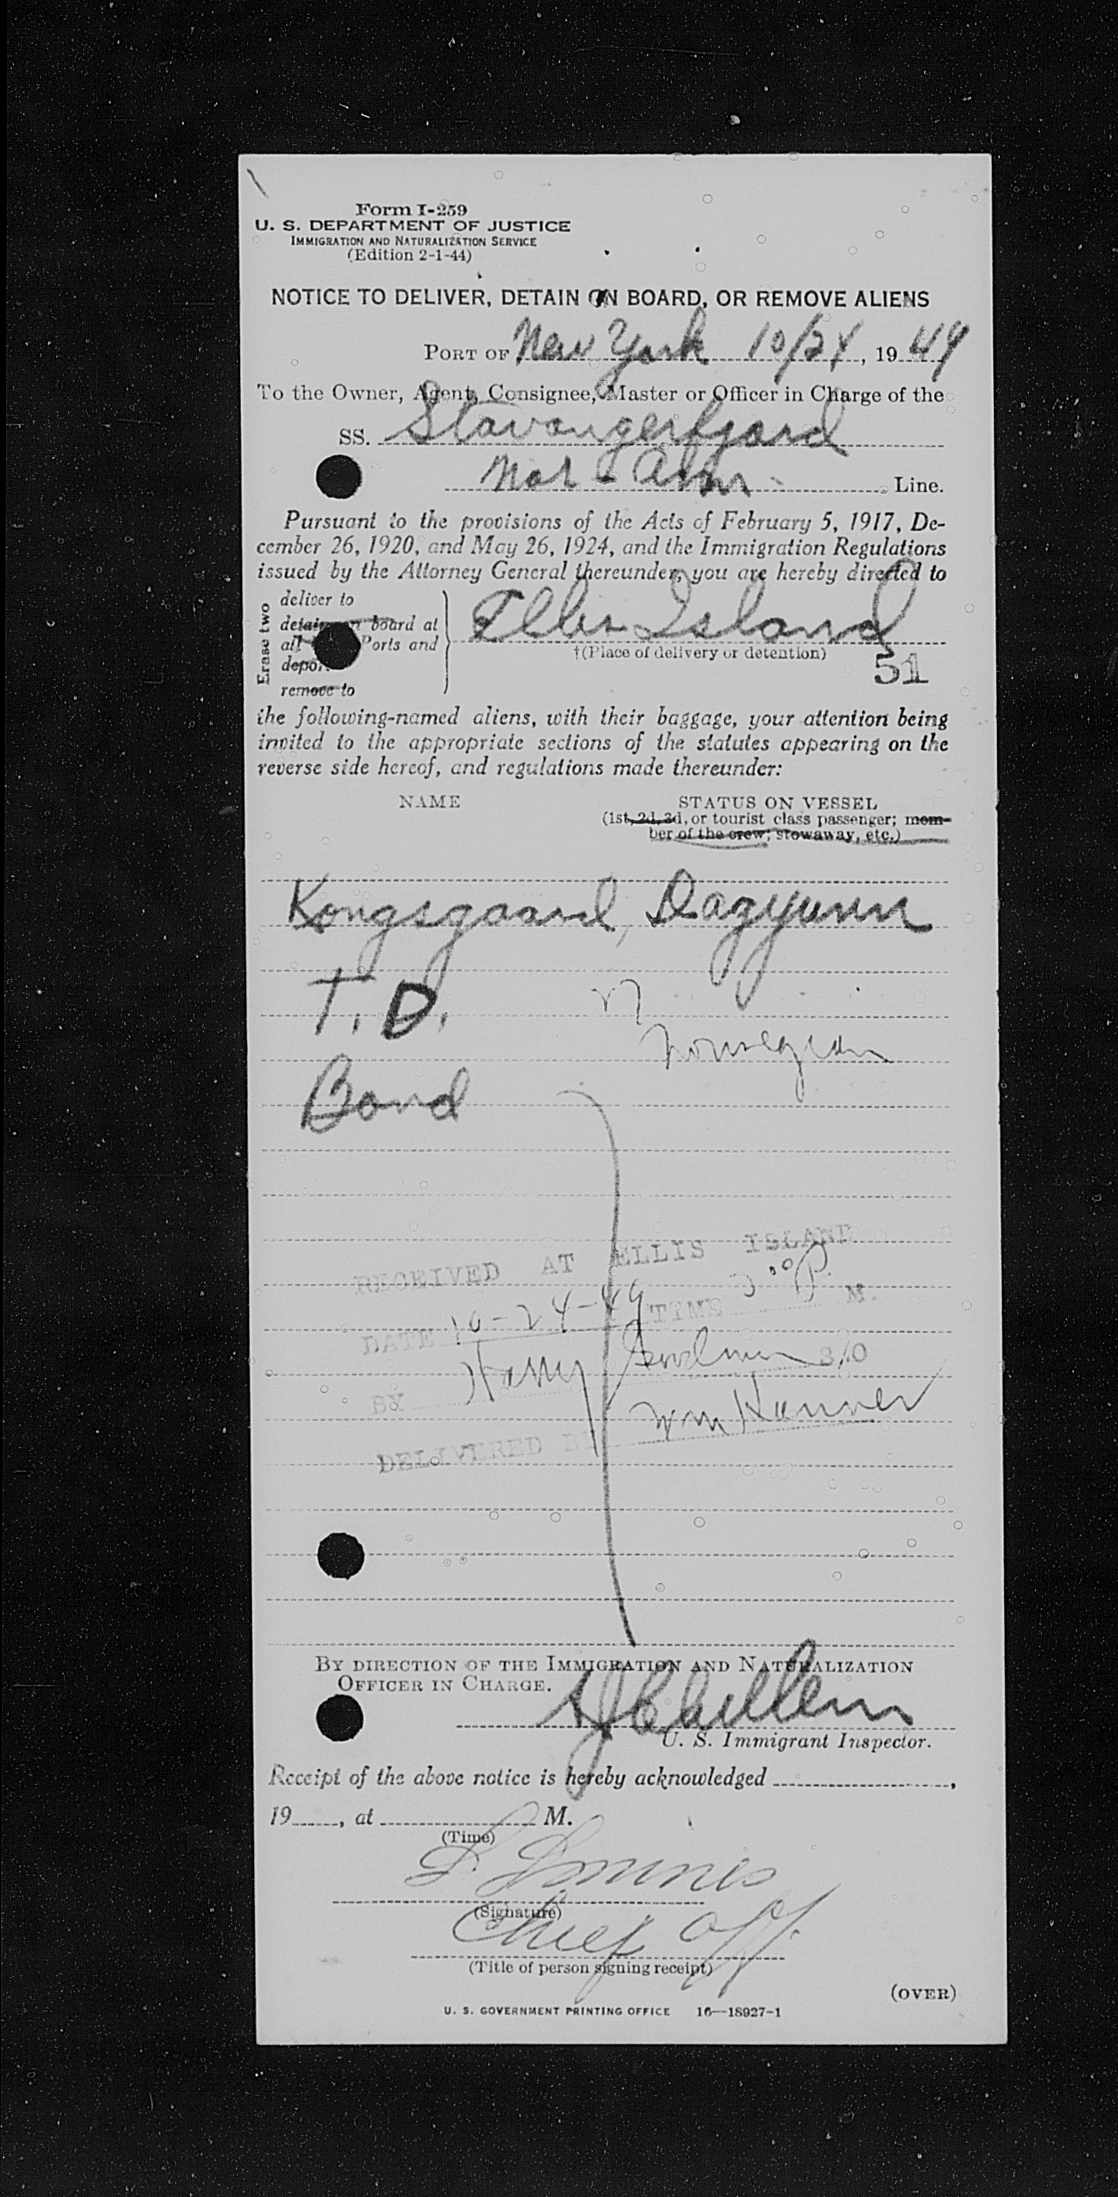 Form I-259
U. S. DEPARTMENT OF JUSTICE
IMMIGRATION AND NATURALIZATION SERVICE
(Edition 2-1-44)
NOTICE TO DELIVER, DETAIN ON BOARD, OR REMOVE ALIENS
PORT OF New York 10/24, 19 49
To the Owner, Agent, Consignee, Master or Officer in Charge of the
SS. Stavangerfjord
Nor - Am Line.
Pursuant to the provisions of the Acts of February 5, 1917, De-
cember 26, 1920, and May 26, 1924, and the Immigration Regulations
issued by the Attorney General thereunder, you are hereby directed to
Erase two
deliver to
detain on board at
all Ports and
depor
remove to
Ellis Island
†(Place of delivery or detention)
51
the following-named aliens, with their baggage, your attention being
invited to the appropriate sections of the statutes appearing on the
reverse side hereof, and regulations made thereunder:
NAME STATUS ON VESSEL
(1st, 2d, 3d, or tourist class passenger; mem-
ber of the crew; stowaway, etc.)
Kongsgaard, Dagyunn
T. D.
Norwegian
Bond
RECEIVED AT ELLIS ISLAND
DATE 10-24-49 TIME P. M.
BY Harry S/O
DELIVERED BY Wm
BY DIRECTION OF THE IMMIGRATION AND NATURALIZATION
OFFICER IN CHARGE.
U. S. Immigrant Inspector.
Receipt of the above notice is hereby acknowledged ,
19 , at M.
(Time)
(Signature)
Chief Off.
(Title of person signing receipt)
(OVER)
U. S. GOVERNMENT PRINTING OFFICE 16—18927-1